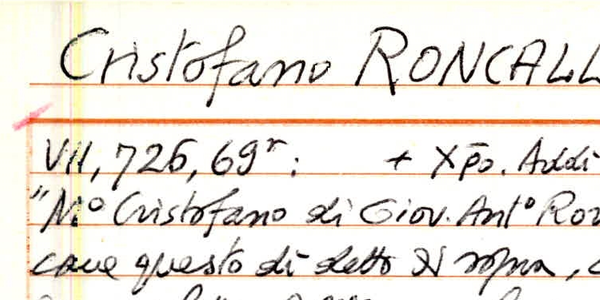 Cristofano RONCALL
VII, 726, 69r: + Xp̄o. Addì
"Mo Cristofano di Giov. Anto Ron
cave questo dì detto di sopra, c